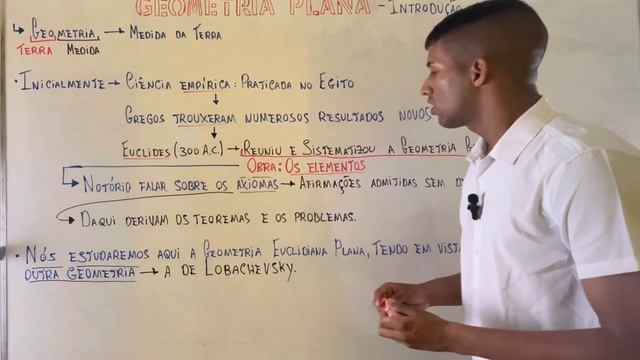 GEOMETRIA PLANA - INTRODUÇÃO
GEO,METRIA, → MEDIDA DA TERRA
TERRA MEDIDA
• INICIALMENTE → CIÊNCIA EMPÍRICA: PRATICADA NO EGITO
GREGOS TROUXERAM NUMEROSOS RESULTADOS NOVOS
EUCLIDES (300 A.C) → REUNIU E SISTEMATIZOU A GEOMETRIA
OBRA: OS ELEMENTOS
NOTÓRIO FALAR SOBRE OS AXIOMAS → AFIRMAÇÕES ADMIJIDAS SEM
DAQUI DERIVAM OS TEOREMAS E OS PROBLEMAS.
• NÓS ESTUDAREMOS AQUI A GEOMETRIA EUCLIDIANA PLANA, TENDO EM VISTA
OUTRA GEOMETRIA → A DE LOBACHEVSKY.